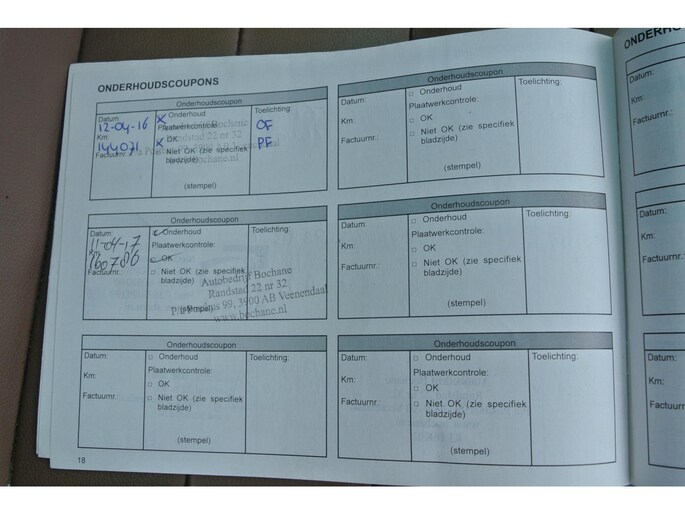 ONDERHOUDSCOUPONS
Onderhoudscoupon
Datum:
12-04-16
Km:
144031
Factuurnr.:
x Onderhoud
Plaatwerkcontrole:
x OK
Niet OK (zie specifiek
bladzijde)
Bochane
Randstad 22 nr 32
(stempel)
Toelichting:
OF
PF
Onderhoudscoupon
Datum:
Km:
Factuurnr.:
Onderhoud
Plaatwerkcontrole:
OK
Niet OK (zie specifiek
bladzijde)
(stempel)
Toelichting:
Onderhoudscoupon
Datum:
11-04-17
160786
Factuurnr.:
Onderhoud
Plaatwerkcontrole:
OK
Niet OK (zie specifiek
bladzijde)
Autobedrijf Bochane
Randstad 22 nr 32
99, 3900 AB Veenendaal
www.bochane.nl
(stempel)
Toelichting:
Onderhoudscoupon
Datum:
Km:
Factuurnr.:
Onderhoud
Plaatwerkcontrole:
OK
Niet OK (zie specifiek
bladzijde)
(stempel)
Toelichting:
Onderhoudscoupon
Datum:
Km:
Factuurnr.:
Onderhoud
Plaatwerkcontrole:
OK
Niet OK (zie specifiek
bladzijde)
(stempel)
Toelichting:
Onderhoudscoupon
Datum:
Km:
Factuurnr.:
Onderhoud
Plaatwerkcontrole:
OK
Niet OK (zie specifiek
bladzijde)
(stempel)
Toelichting:
18
Datum:
Km:
Factuurnr.:
Datum:
Km:
Factuurnr.:
Datum:
Km:
Factuurnr.: